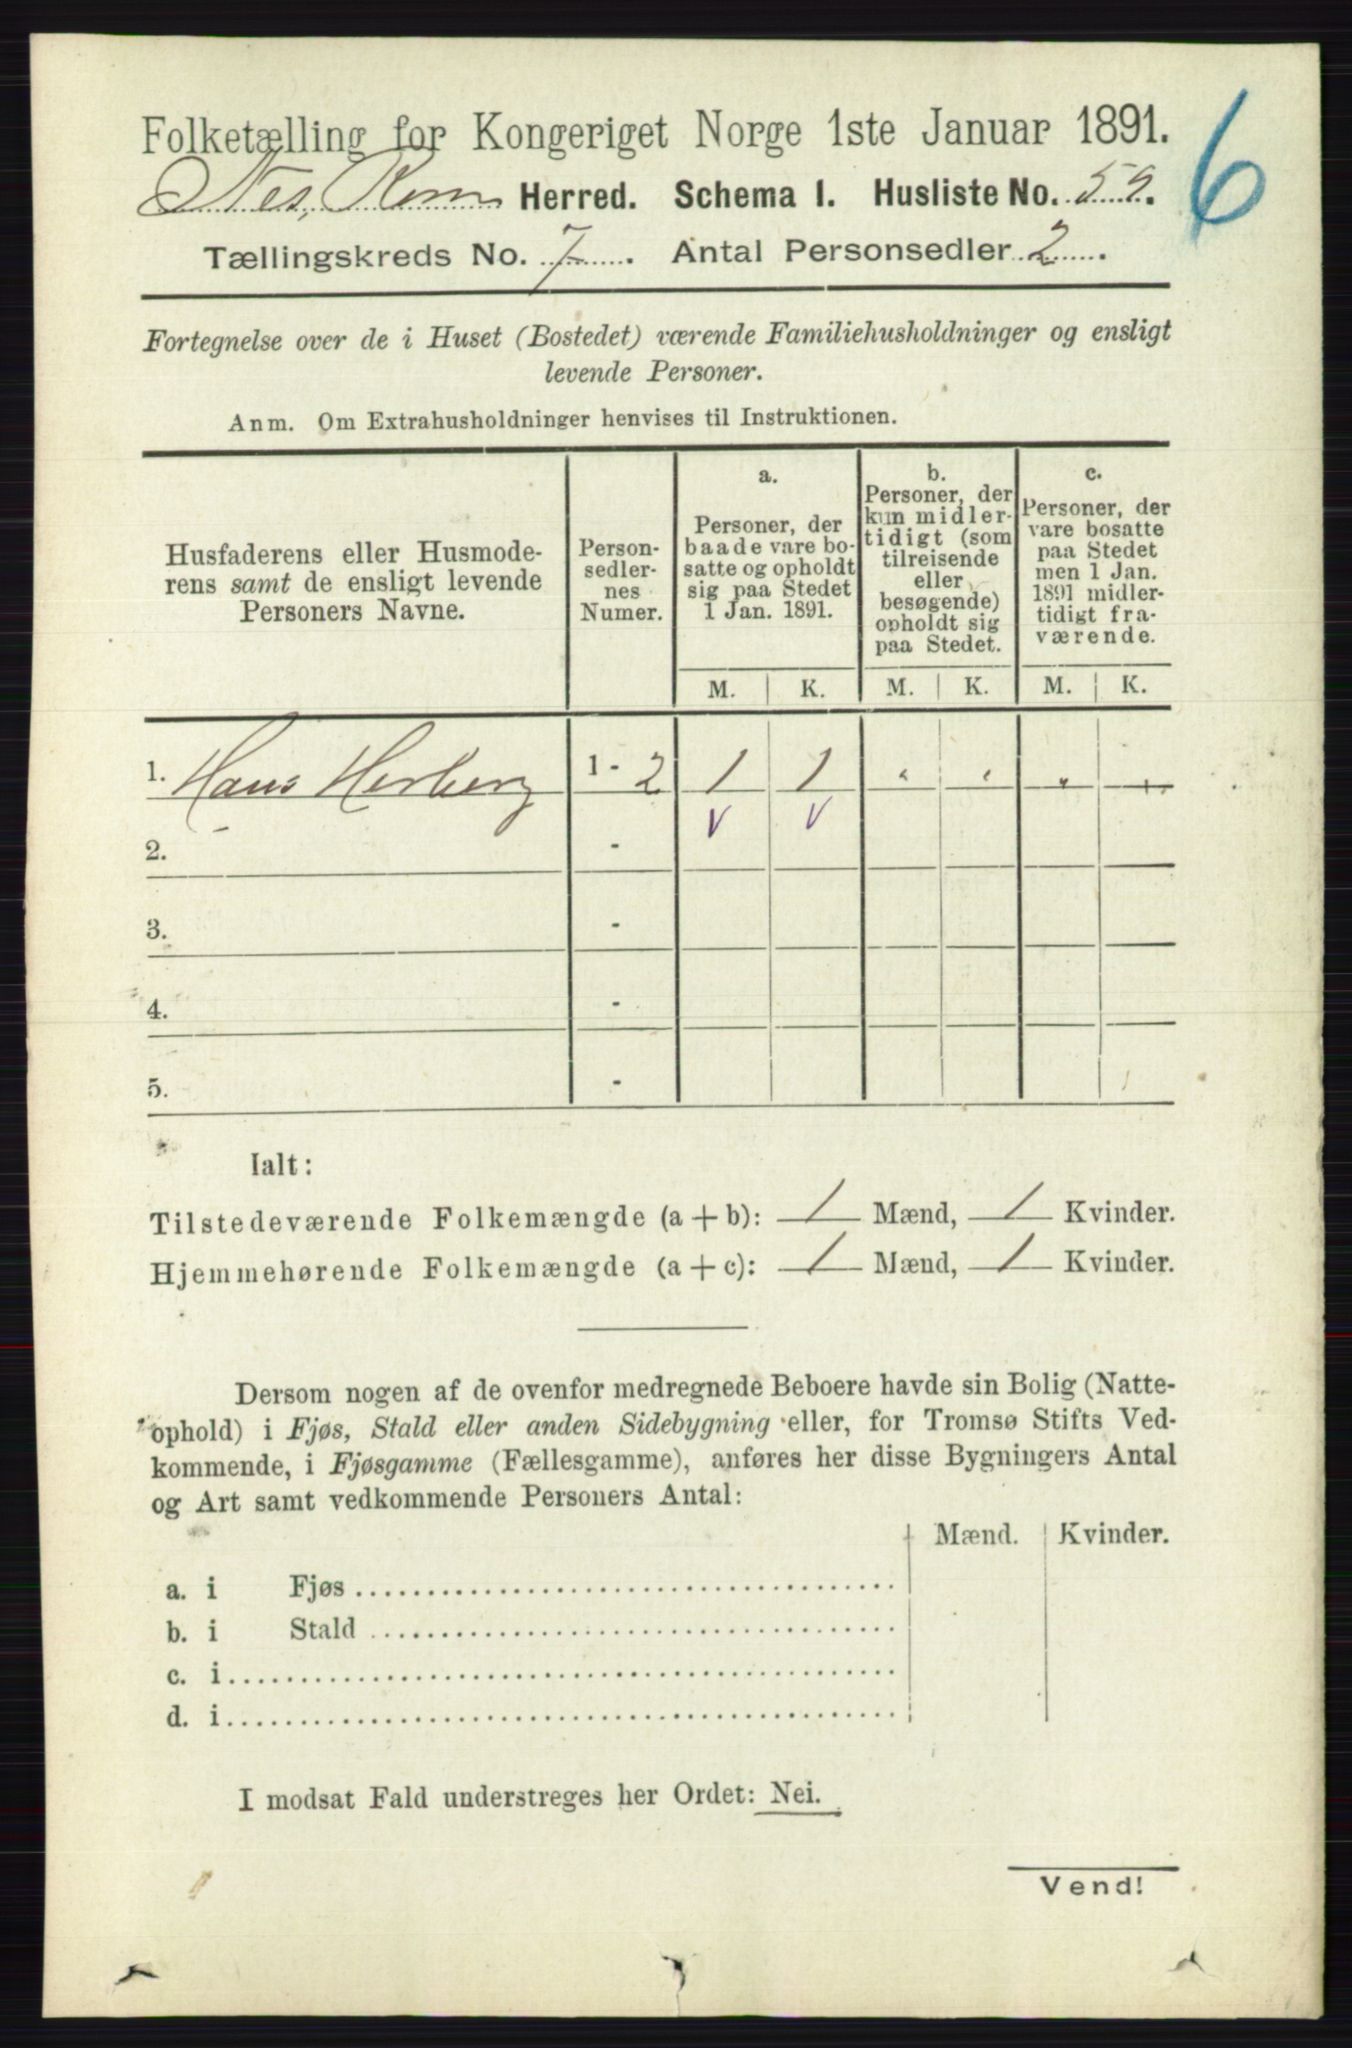 Folketælling for Kongeriget Norge 1ste Januar 1891.
6
Nes, Rom Herred. Schema I. Husliste No. 59.
Tællingskreds No. 7. Antal Personsedler 2.
Fortegnelse over de i Huset (Bostedet) værende Familiehusholdninger og ensligt
levende Personer.
Anm. Om Extrahusholdninger henvises til Instruktionen.
Husfaderens eller Husmode-
rens samt de ensligt levende
Personers Navne.
Person-
sedler-
nes
Numer.
a.
Personer, der
baade vare bo-
satte og opholdt
sig paa Stedet
1 Jan. 1891.
b.
Personer, der
kun midler-
tidigt (som
tilreisende
eller
besøgende)
opholdt sig
paa Stedet.
c.
Personer, der
vare bosatte
paa Stedet
men 1 Jan.
1891 midler-
tidigt fra-
værende.
M. K. M. K. M. K.
1. Hans Herberg 1 - 2 1 1 " " " "
v v
2. -
3. -
4. -
5. -
Ialt:
Tilstedeværende Folkemængde (a + b): 1 Mænd, 1 Kvinder.
Hjemmehørende Folkemængde (a + c): 1 Mænd, 1 Kvinder.
Dersom nogen af de ovenfor medregnede Beboere havde sin Bolig (Natte-
ophold) i Fjøs, Stald eller anden Sidebygning eller, for Tromsø Stifts Ved-
kommende, i Fjøsgamme (Fællesgamme), anføres her disse Bygningers Antal
og Art samt vedkommende Personers Antal:
Mænd. Kvinder.
a. i Fjøs
b. i Stald
c. i
d. i
I modsat Fald understreges her Ordet: Nei.
Vend!